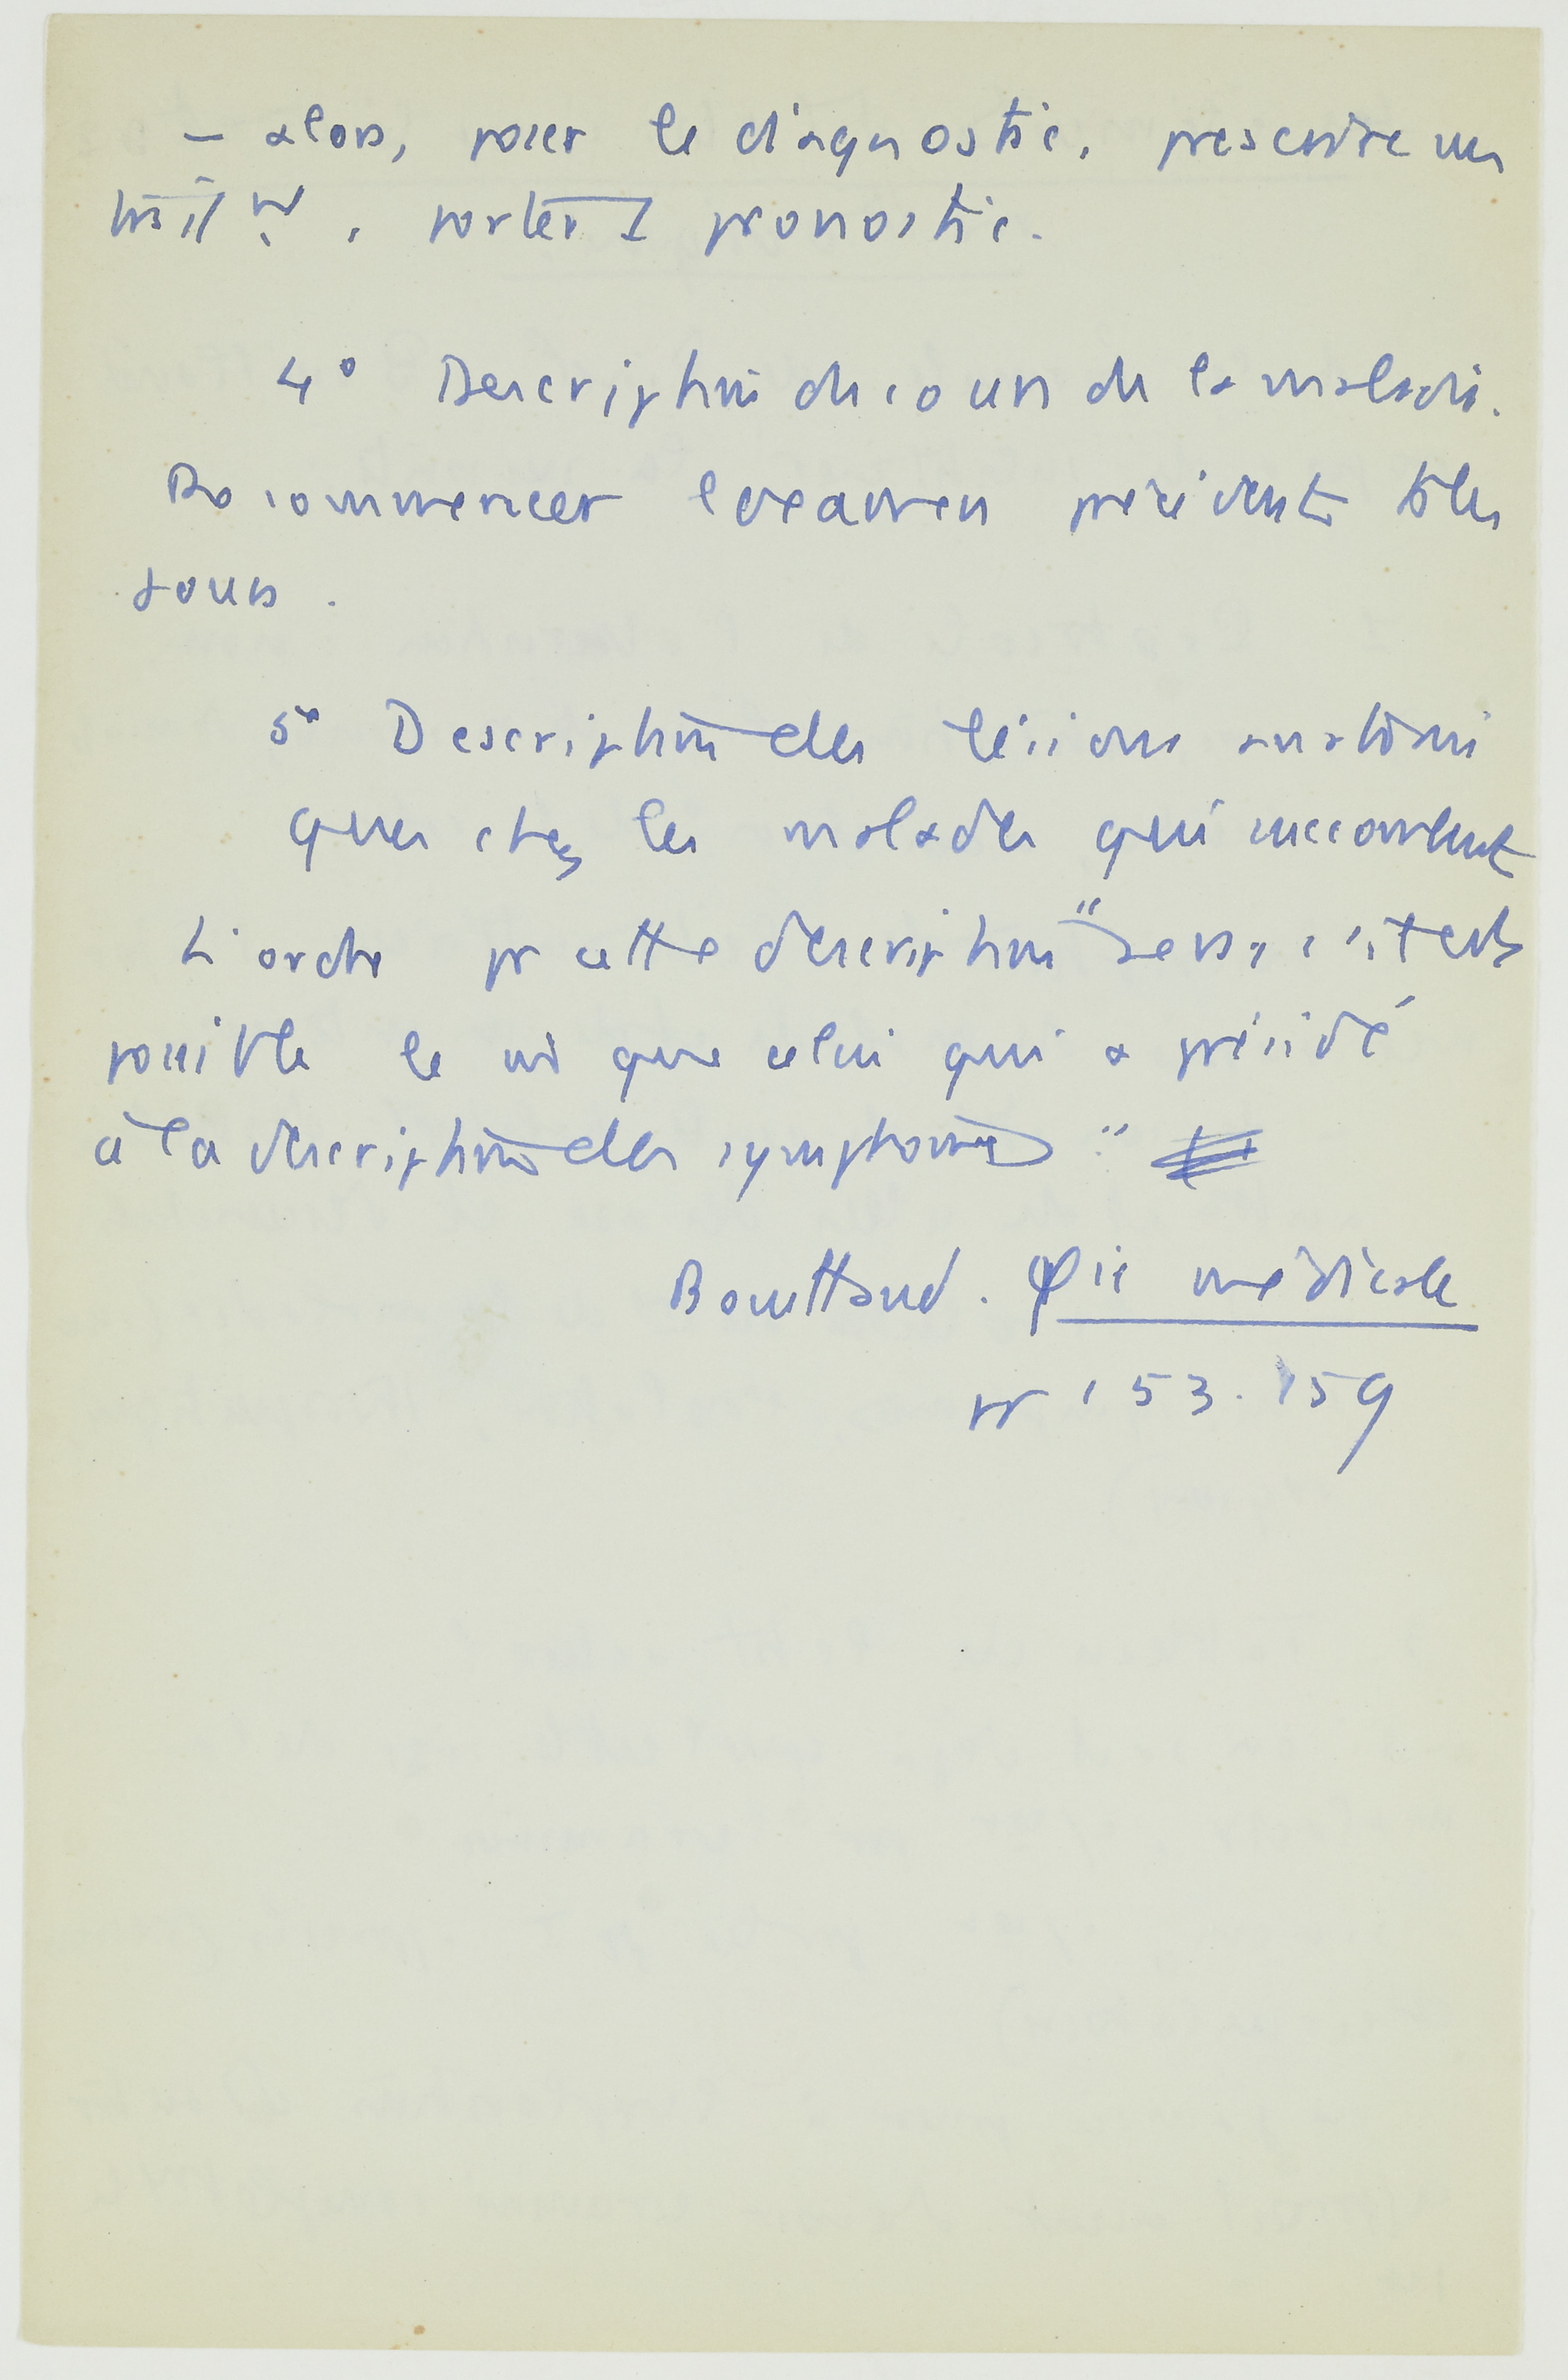 – alors, poser le diagnostic, prescrire un
traitt, porter 1 pronostic.
4° Description du cours de la maladie.
Recommencer l'examen précédent ts les
jours.
5° Description des lésions anatomi
ques chez les malades qui succombent
L'ordre pr cette description "sera, s'il est
possible le m que celui qui a présidé
à la description des symptômes"
Bouillaud. φie médicale
pr 153.159